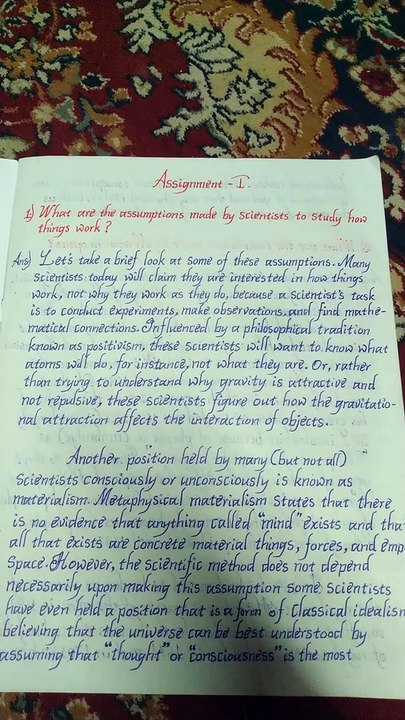 Assignment - I.
1) What are the assumptions made by Scientists to study how
things work?
Ans) Let's take a brief look at some of these assumptions. Many
scientists today will claim they are interested in how things
work, not why they work as they do, because a scientist's task
is to conduct experiments, make observations, and find mathe-
matical connections. Influenced by a philosophical tradition
known as positivism, these scientists will want to know what
atoms will do, for instance, not what they are. Or, rather
than trying to understand why gravity is attractive and
not repulsive, these scientists figure out how the gravitatio-
nal attraction affects the interaction of objects..
Another position held by many (but not all)
Scientists consciously or unconsciously is known as
materialism. Metaphysical materialism states that there
is no evidence that anything called "mind" exists and tha
all that exists are concrete material things, forces, and emp
Space. However, the scientific method does not depend
necessarily upon making this assumption some scientists
have even held a position that is a form of classical idealism
believing that the universe can be best understood by
assuming that "thought" or "consciousness" is the most